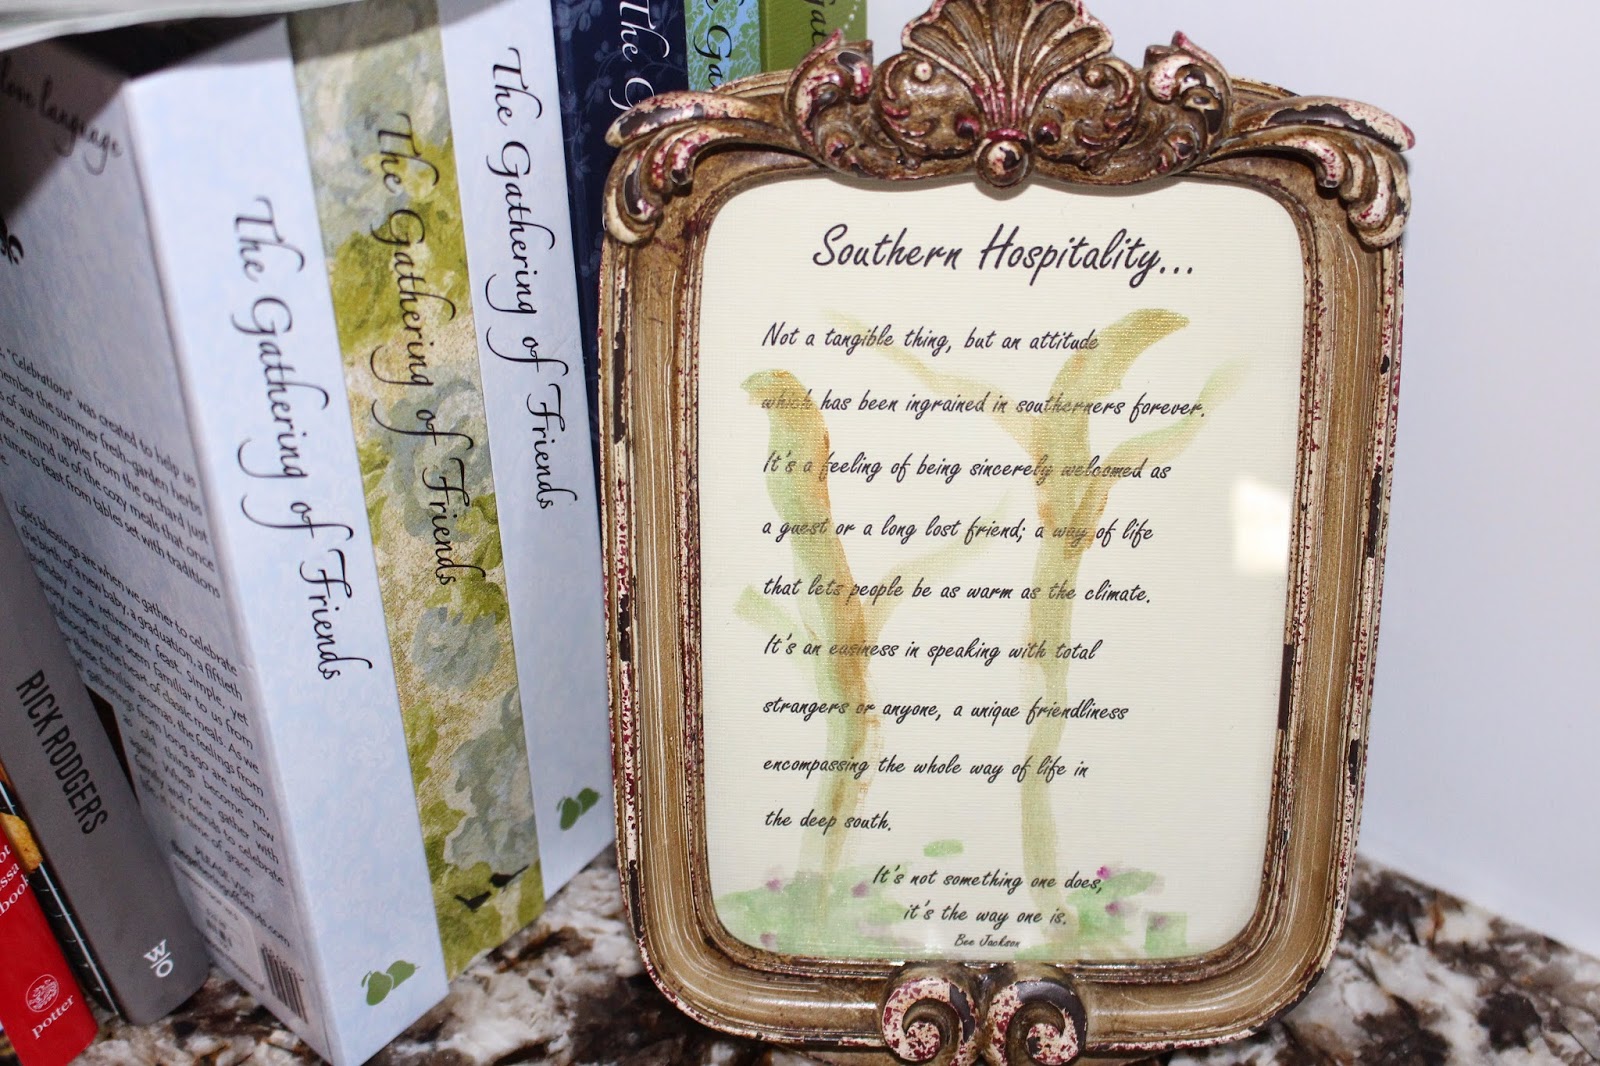 love language
"Celebrations" was created to help us
remember the summer fresh-garden herbs
of autumn apples from the orchard just
remind us of the cozy meals that once
time to feast from tables set with traditions
Life's blessings are when we gather to celebrate
the birth of a new baby, a graduation, a fiftieth
birthday or a retirement feast. Simple, yet
recipes that seem familiar to us from
are the heart of classic meals. As we
these familiar aromas, the feelings from
gatherings from long ago are reborn,
as old things become new
again. When we gather with
family and friends to celebrate
life, it is a time of grace.
PLEASE VISIT
thegatheringoffriends.com
RICK RODGERS
W/O
potter
The Gathering of Friends
The Gathering of Friends
The Gathering of Friends
The G
Southern Hospitality...
Not a tangible thing, but an attitude
which has been ingrained in southerners forever.
It's a feeling of being sincerely welcomed as
a guest or a long lost friend; a way of life
that lets people be as warm as the climate.
It's an easiness in speaking with total
strangers or anyone, a unique friendliness
encompassing the whole way of life in
the deep south.
It's not something one does,
it's the way one is.
Bee Jackson